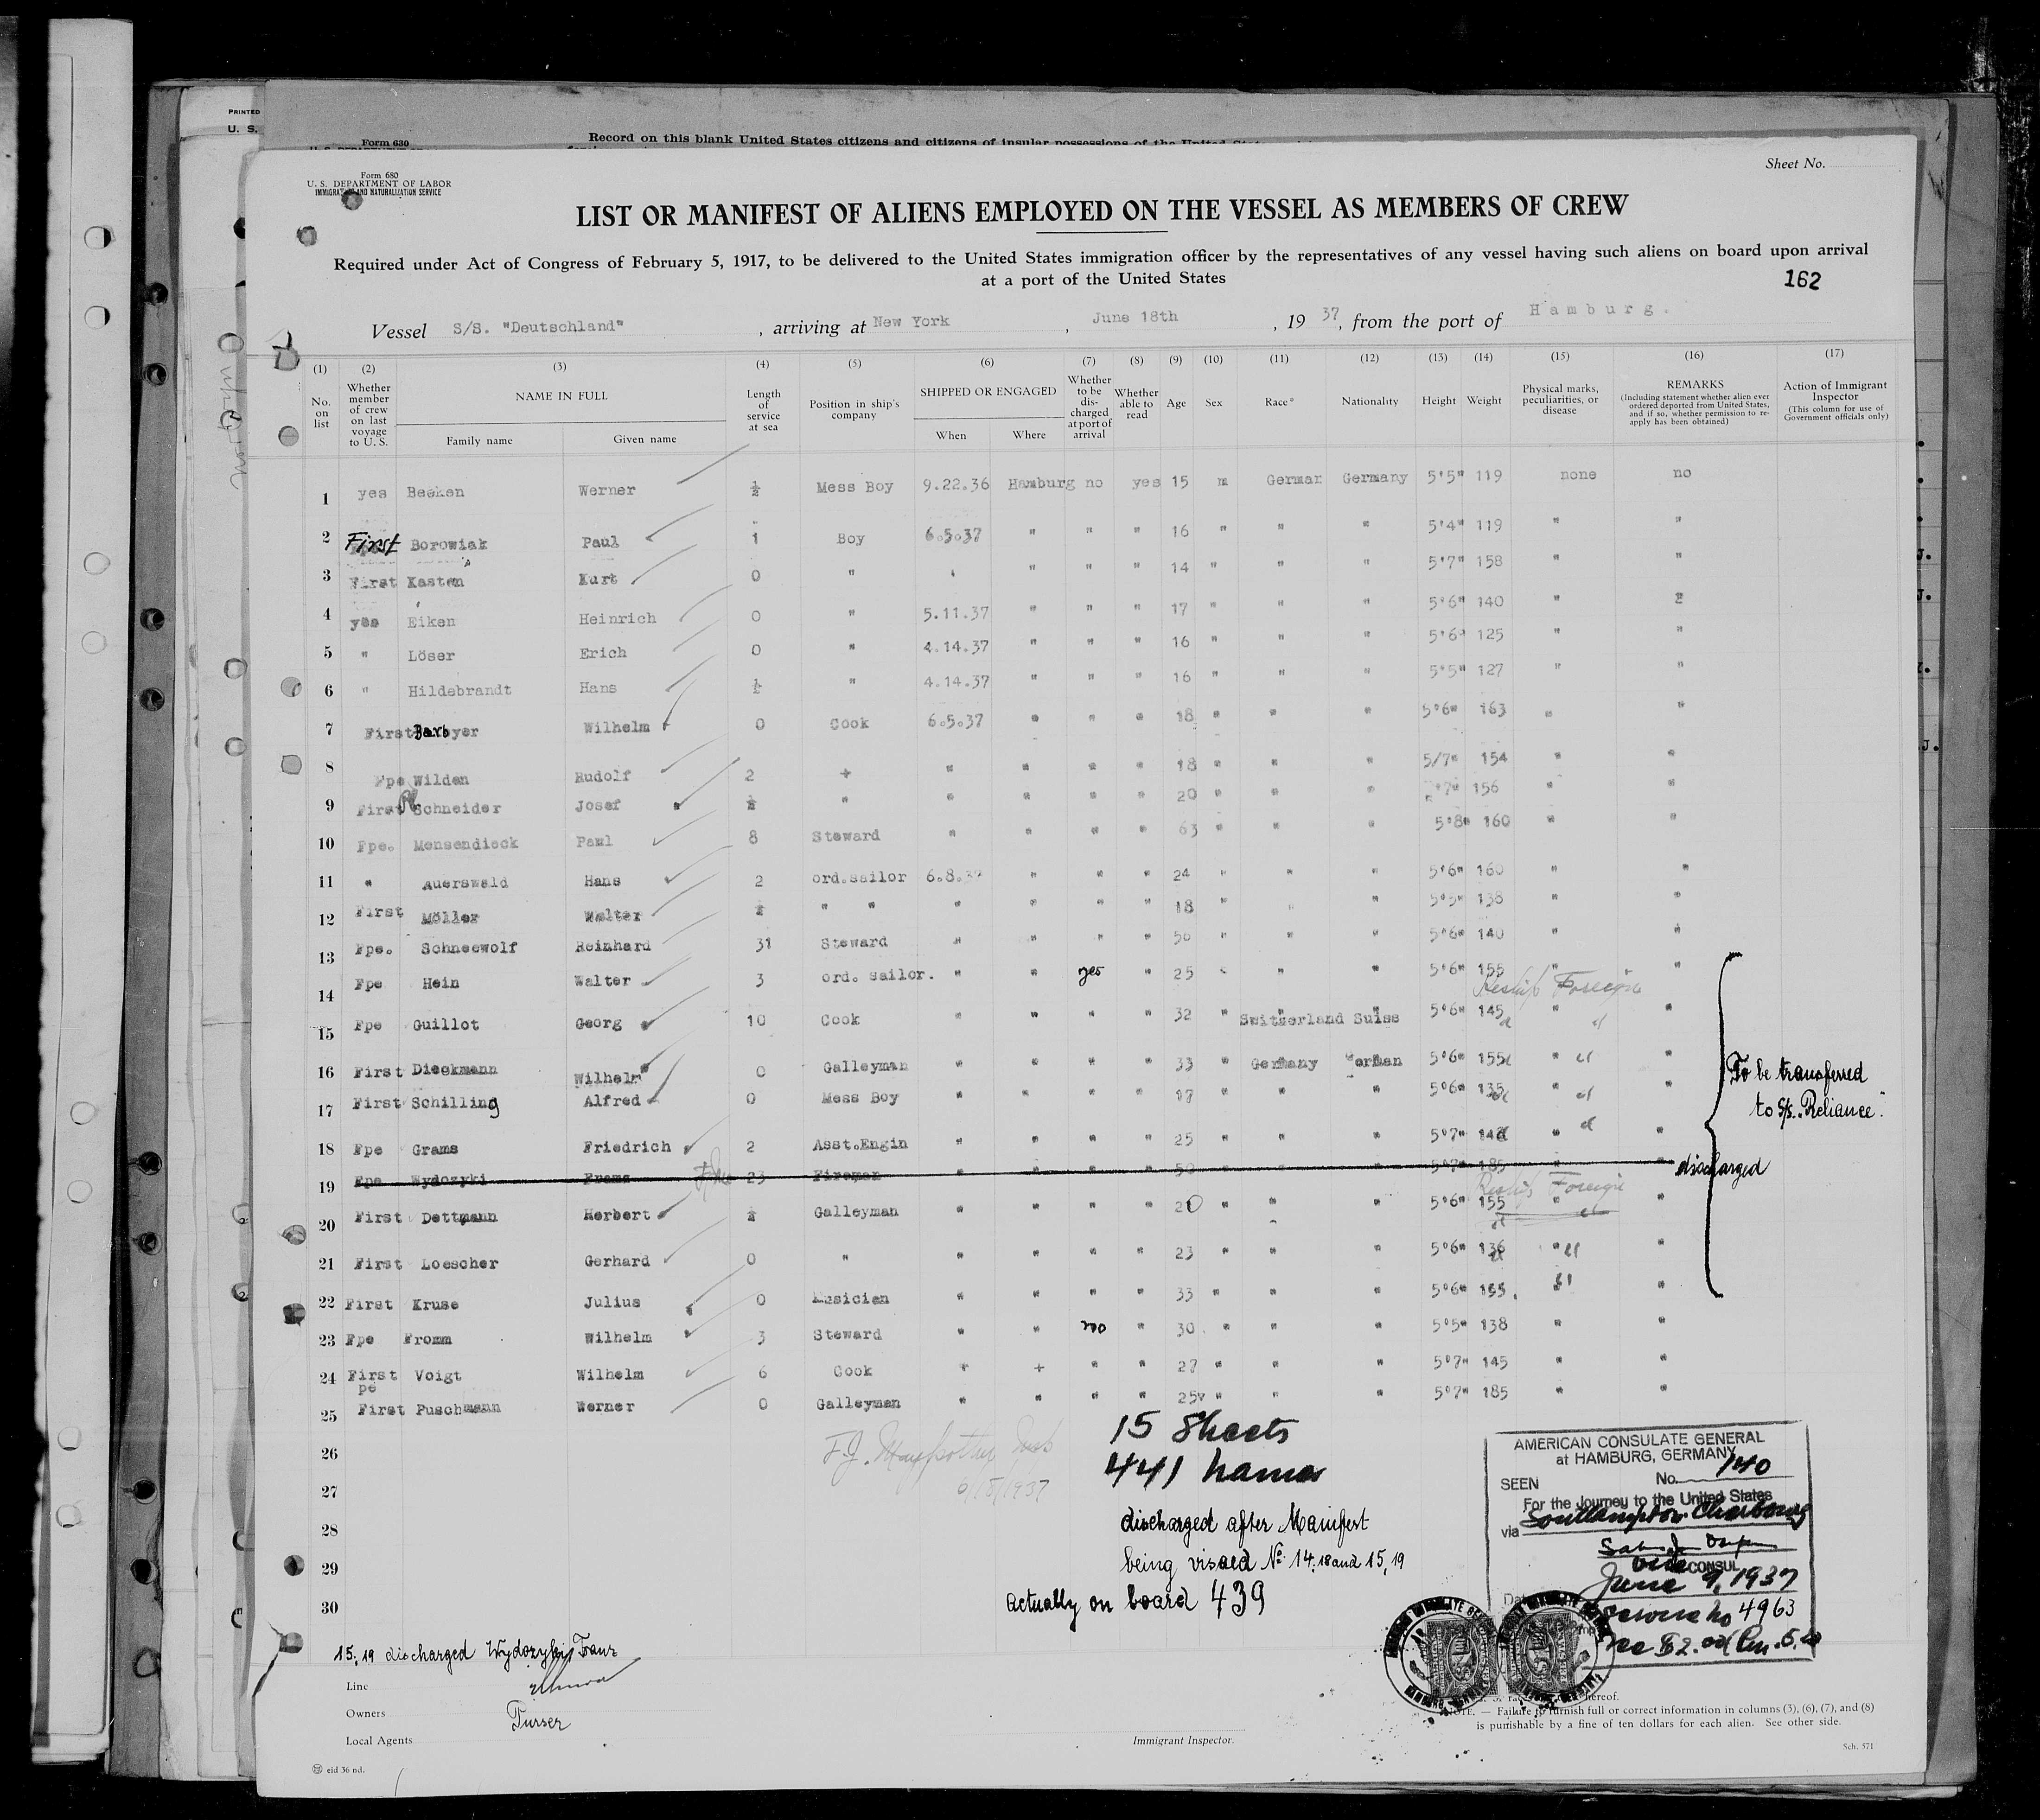 PRINTED
U. S.
Form 630
Record on this blank United States citizens and citizens of insular possessions of the United
Sheet No.
Form 680
U. S. DEPARTMENT OF LABOR
IMMIGRATION AND NATURALIZATION SERVICE
LIST OR MANIFEST OF ALIENS EMPLOYED ON THE VESSEL AS MEMBERS OF CREW
Required under Act of Congress of February 5, 1917, to be delivered to the United States immigration officer by the representatives of any vessel having such aliens on board upon arrival
at a port of the United States
162
Vessel S/S. "Deutschland" , arriving at New York , June 18th , 19 37, from the port of Hamburg.
(1) (2) (3) (4) (5) (6) (7) (8) (9) (10) (11) (12) (13) (14) (15) (16) (17)
No. on list
Whether member of crew on last voyage to U. S.
NAME IN FULL
Family name Given name
Length of service at sea
Position in ship's company
SHIPPED OR ENGAGED
When Where
Whether to be discharged at port of arrival
Whether able to read
Age Sex Race* Nationality Height Weight
Physical marks, peculiarities, or disease
REMARKS
(Including statement whether alien ever ordered deported from United States, and if so, whether permission to reapply has been obtained)
Action of Immigrant Inspector
(This column for use of Government officials only)
1 yes Beeken Werner ½ Mess Boy 9.22.36 Hamburg no yes 15 m German Germany 5'5" 119 none no
2 First Borowiak Paul 1 Boy 6.5.37 " " " 16 " " " 5'4" 119 " "
3 First Kasten Kurt 0 " " " " 14 " " " 5'7" 158 " "
4 yes Eiken Heinrich 0 " 5.11.37 " " " 17 " " " 5'6" 140 " "
5 " Löser Erich 0 " 4.14.37 " " " 16 " " " 5'6" 125 " "
6 " Hildebrandt Hans ½ " 4.14.37 " " " 16 " " " 5'5" 127 " "
7 First Wilhelm 0 Cook 6.5.37 " " " 18 " " " 5'6" 163 " "
8 Fpe Wilden Rudolf 2 + " " " " 18 " " " 5/7" 154 " "
9 First Schneider Josef ½ " " " " " 20 " " " 7" 156 " "
10 Fpe. Mensendieck Paul 8 Steward " " " " 63 " " " 5'8" 160 " "
11 " Auerswald Hans 2 ord.sailor 6.8.37 " " " 24 " " " 5'6" 160 " "
12 First Möller Walter ½ " " " " " " 18 " " " 5'5" 138 " "
13 Fpe. Schneewolf Reinhard 31 Steward " " " " 50 " " " 5'6" 140 " "
14 Fpe Hein Walter 3 ord. sailor. " " yes " 25 " " " 5'6" 155 " "
Reship Foreign
15 Fpe Guillot Georg 10 Cook " " " " 32 " Switzerland Suiss 5'6" 145 " "
16 First Dieckmann Wilhelm 0 Galleyman " " " " 33 " Germany German 5'6" 155 " "
17 First Schilling Alfred 0 Mess Boy " " " " 17 " " " 5'6" 135 " "
To be transferred
to S/s. "Reliance".
18 Fpe Grams Friedrich 2 Asst.Engin " " " " 25 " " " 5'7" " "
19 Fpe Wydozyki Franz 23 Fireman " " " " 50 " " " 5'7" 185 discharged
Reship Foreign
20 First Dettmann Herbert ½ Galleyman " " " " 20 " " " 5'6" 155 " "
21 First Loescher Gerhard 0 " " " " " 23 " " " 5'6" 136 " "
22 First Kruse Julius 0 Musician " " " " 33 " " " 5'6" 155 "
23 Fpe Fromm Wilhelm 3 Steward " " no " 30 " " " 5'5" 138 " "
24 First Voigt Wilhelm 6 Cook " + " " 27 " " " 5'7" 145 " "
pe
25 First Puschmann Werner 0 Galleyman " " " " 25 " " " 5'7" 185 " "
26
27
28
29
30
6/18/1937
15 Sheets
441 names
discharged after Manifest
being visaed No. 14, 18 and 15, 19
actually on board 439
AMERICAN CONSULATE GENERAL
at HAMBURG, GERMANY
SEEN No. 140
For the Journey to the United States
via Southampton Cherbourg
CONSUL
June 9, 1937
Service No 4963
Fee $2.00
15, 19 discharged Wydozyki, Franz
Line
Owners
Purser
Local Agents
Immigrant Inspector.
hereof.
NOTE. — Failure to furnish full or correct information in columns (3), (6), (7), and (8)
is punishable by a fine of ten dollars for each alien. See other side.
Sch. 571
eid 36 nd.